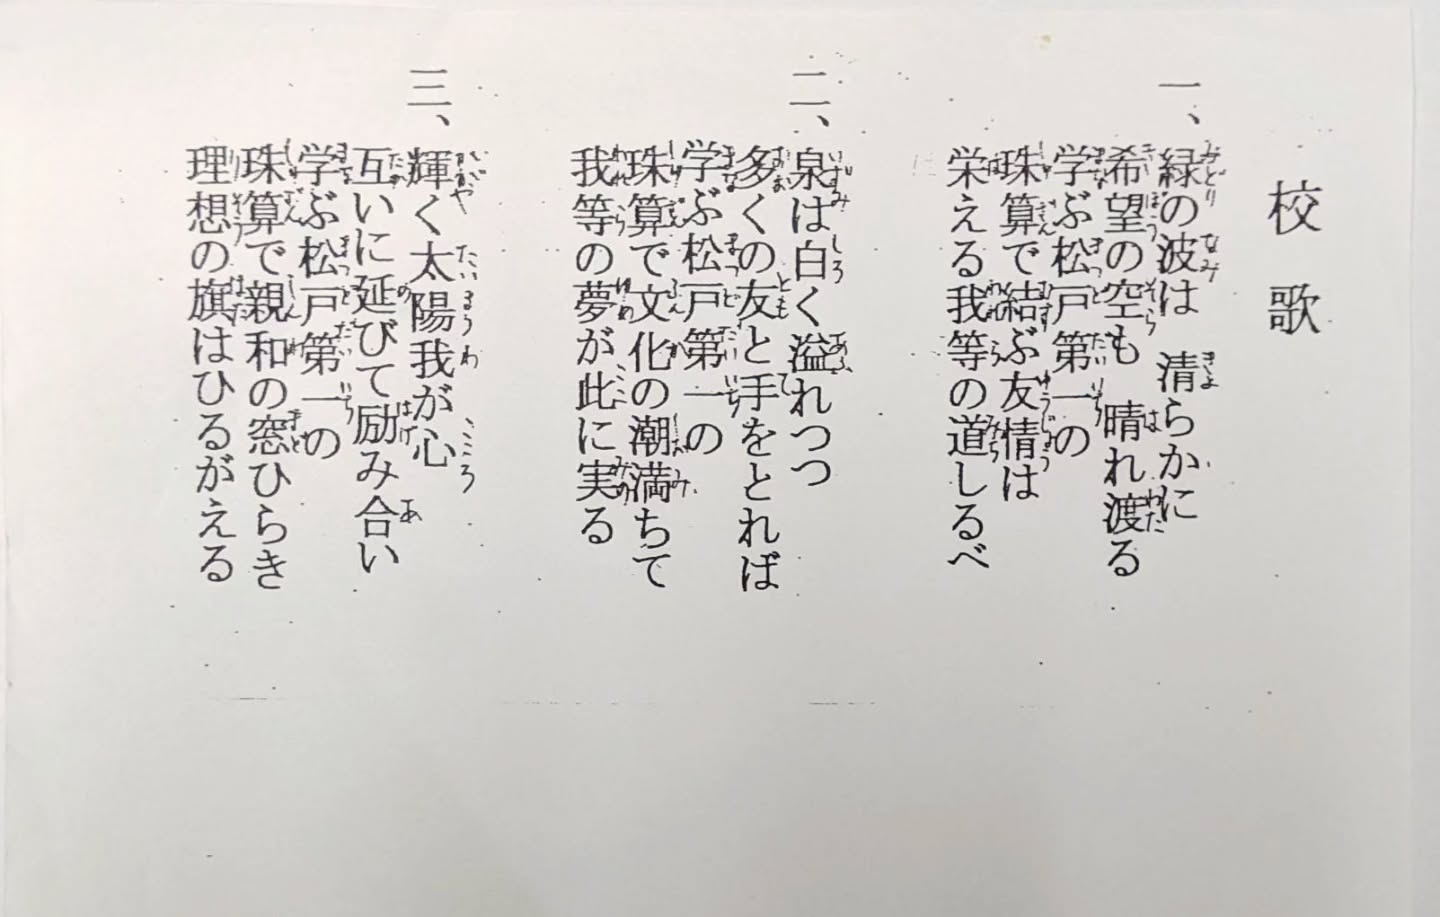 校歌
一、緑の波は 清らかに
希望の空も 晴れ渡る
学ぶ松戸第一の
珠算で結ぶ友情は
栄える我等の道しるべ
二、泉は白く溢れつつ
多くの友と手をとれば
学ぶ松戸第一の
珠算で文化の潮満ちて
我等の夢が此に実る
三、輝く太陽我が心
互いに延びて励み合い
学ぶ松戸第一の
珠算で親和の窓ひらき
理想の旗はひるがえる